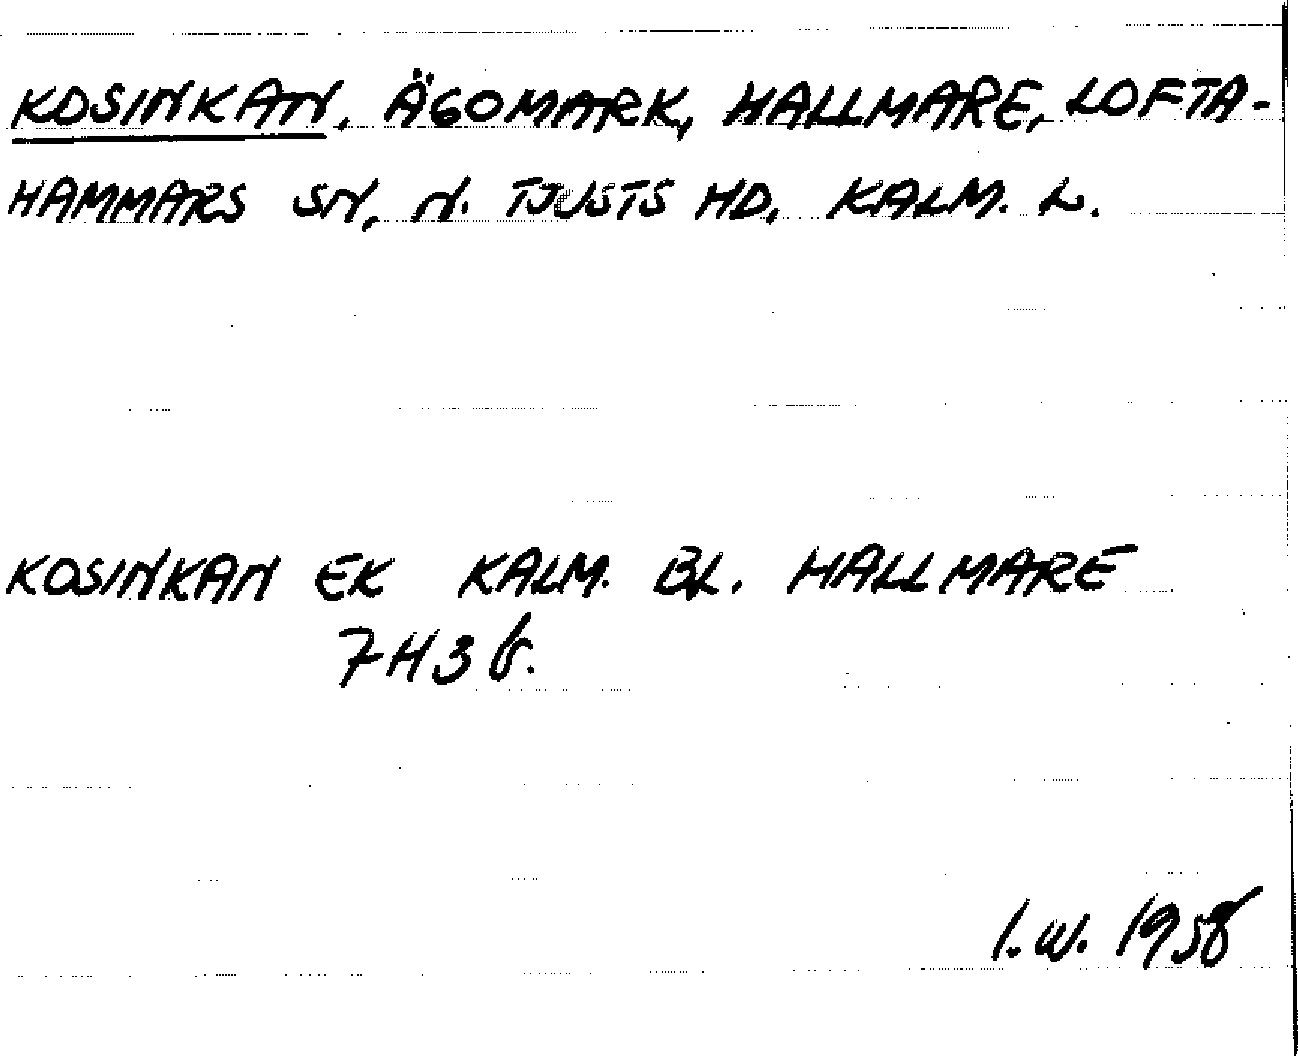 KOSINKAN, ÄGOMARK, HALLMARE, LOFTA-
HAMMARS SN, N. TJUSTS HD, KALM. L.
KOSINKAN EK KALM. BL. HALLMARE
7H3b.
I.W. 1958